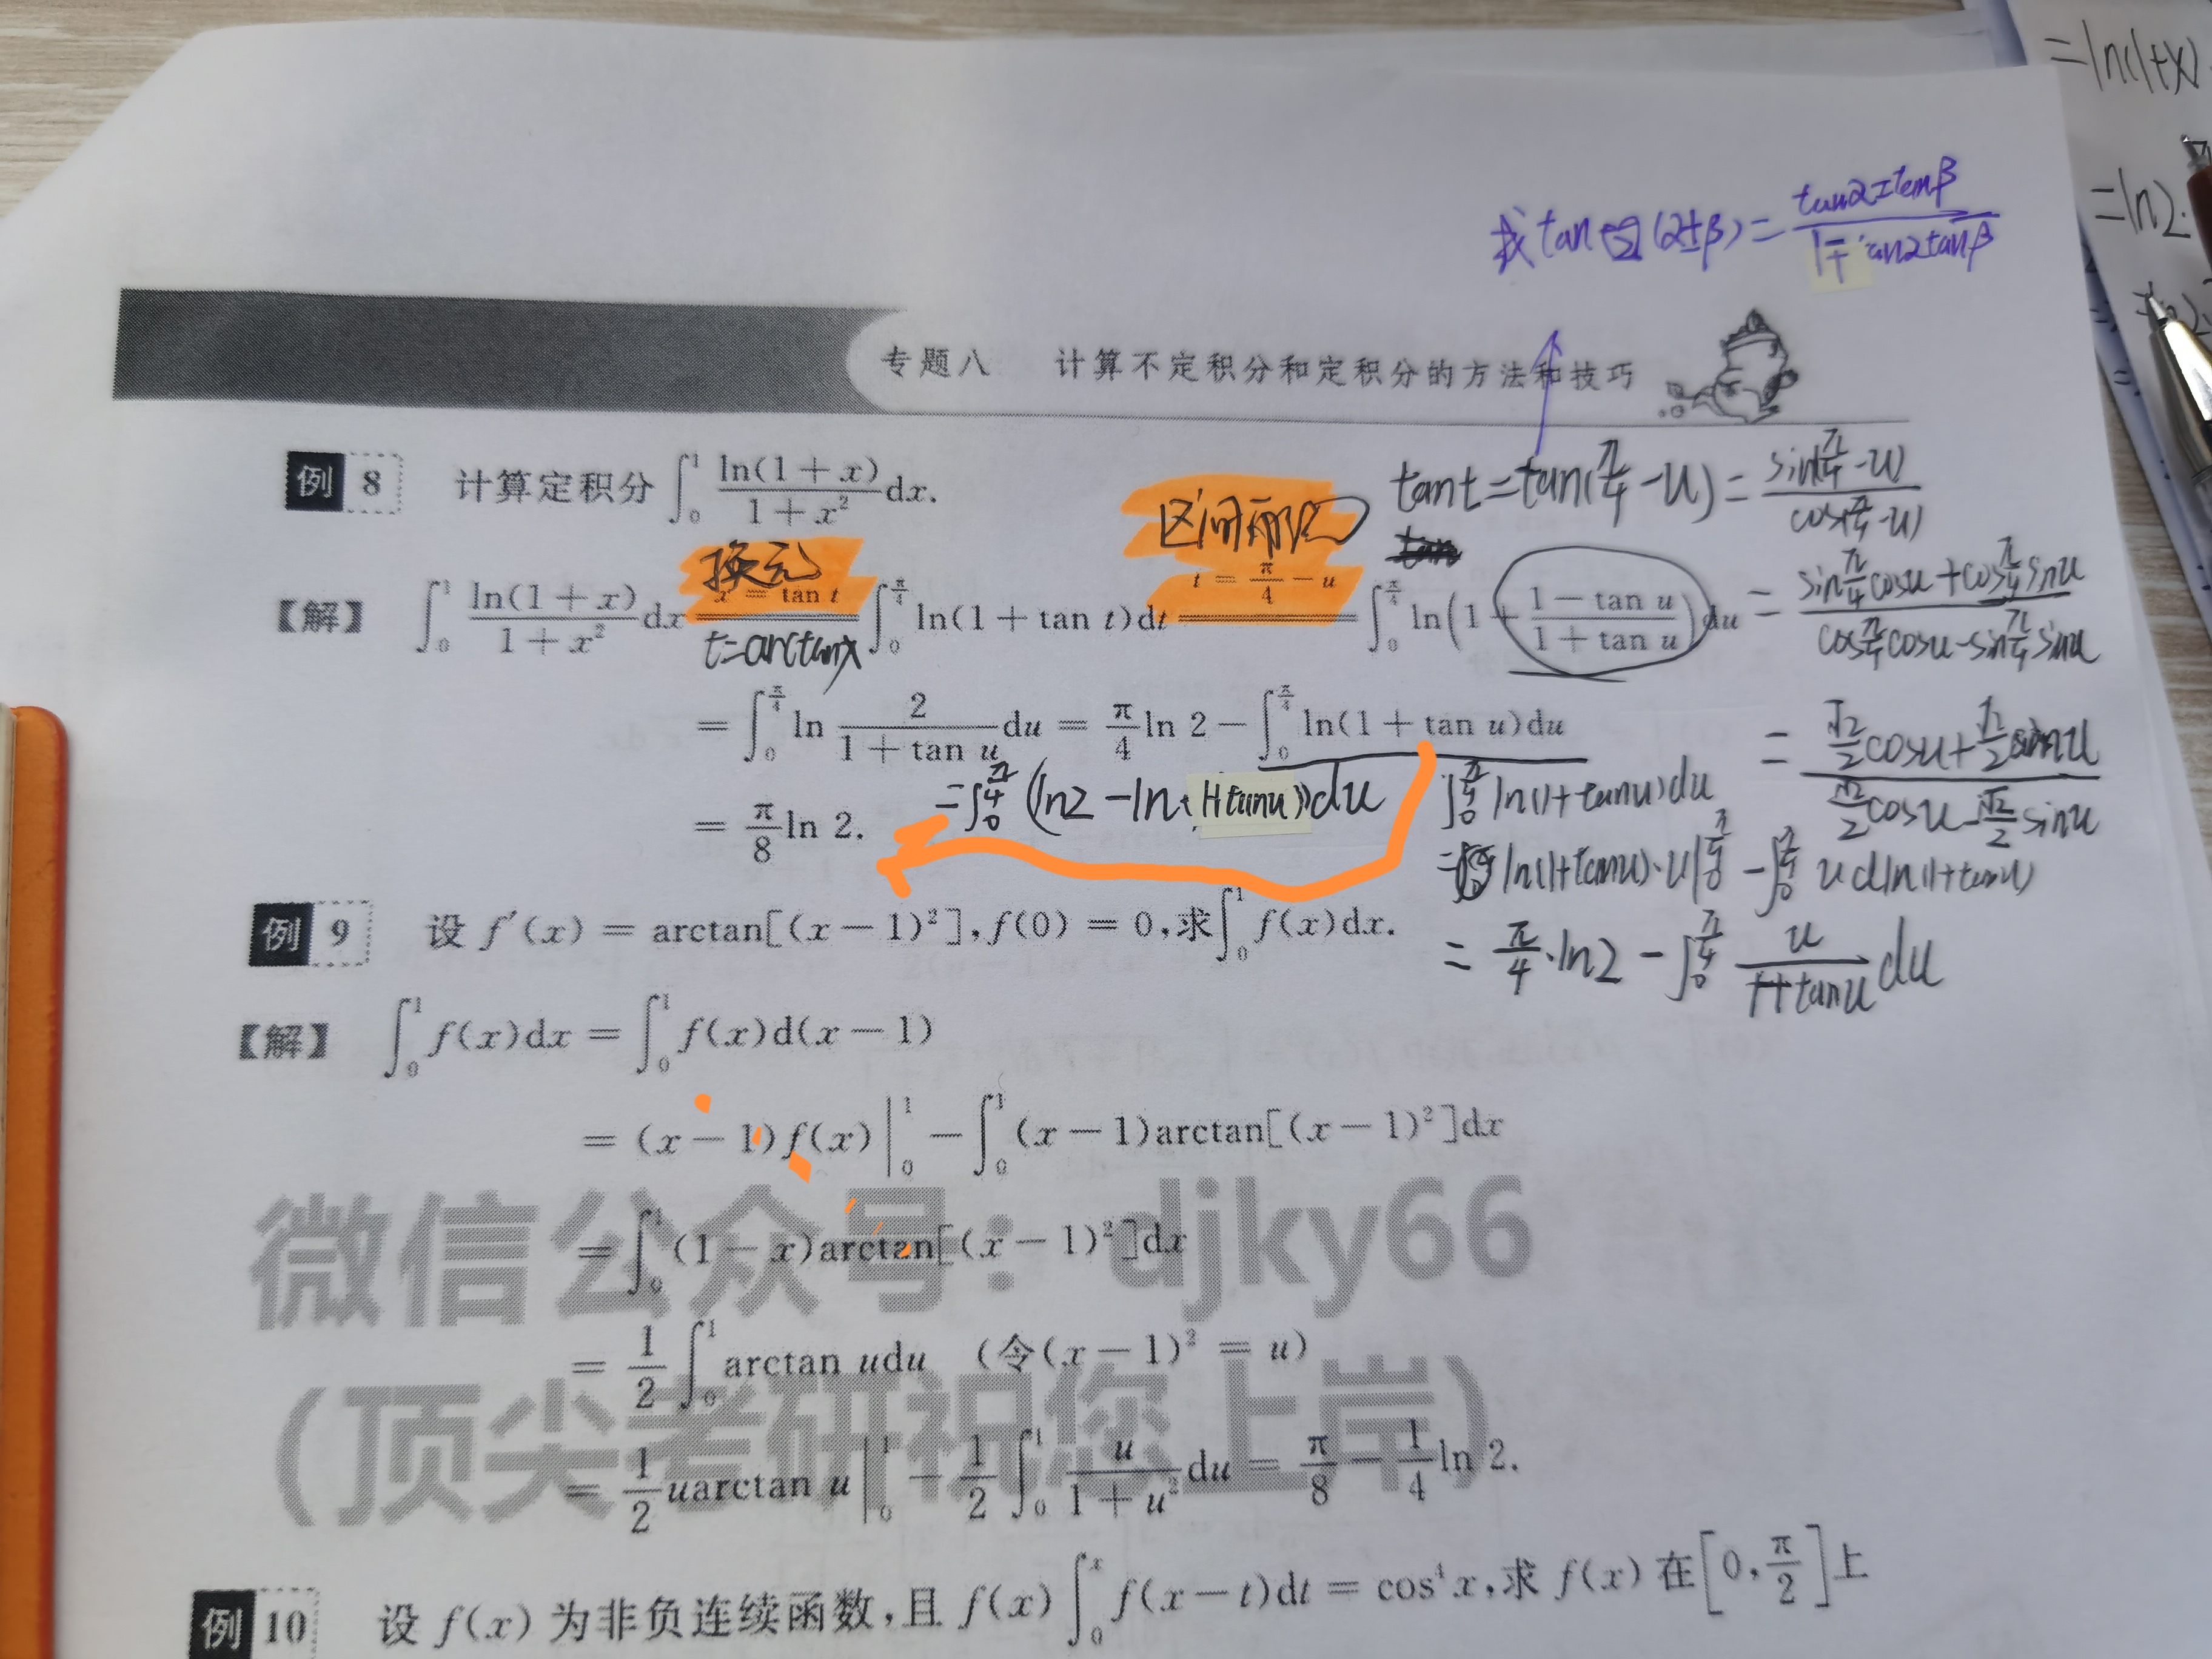 =ln(1+x)
=ln2.
找tan 包 (α±β)=\frac{tanα±tanβ}{1∓tanαtanβ}
专题八 计算不定积分和定积分的方法和技巧
例 8 计算定积分 \int_0^1 \frac{\ln(1+x)}{1+x^2}dx.
tant=tan(\frac{π}{4}-u)=\frac{sin(\frac{π}{4}-u)}{cos(\frac{π}{4}-u)}
换元
区间
【解】 \int_0^1 \frac{\ln(1+x)}{1+x^2}dx \overset{x=\tan t}{=} \int_0^{\frac{π}{4}} \ln(1+\tan t)dt \overset{t=\frac{π}{4}-u}{=} \int_0^{\frac{π}{4}} \ln\left(1+\frac{1-\tan u}{1+\tan u}\right)du
t=arctanx
=\frac{sin\frac{π}{4}cosu+cos\frac{π}{4}sinu}{cos\frac{π}{4}cosu-sin\frac{π}{4}sinu}
= \int_0^{\frac{π}{4}} \ln\frac{2}{1+\tan u}du = \frac{π}{4}\ln 2 - \int_0^{\frac{π}{4}} \ln(1+\tan u)du
=\frac{\frac{\sqrt{2}}{2}cosu+\frac{\sqrt{2}}{2}sinu}{\frac{\sqrt{2}}{2}cosu-\frac{\sqrt{2}}{2}sinu}
=\int_0^{\frac{π}{4}}(ln2-ln(1+tanu))du
= \frac{π}{8}\ln 2.
\int_0^{\frac{π}{4}} ln(1+tanu)du
=ln(1+tanu)·u|_0^{\frac{π}{4}}-\int_0^{\frac{π}{4}} u dln(1+tanu)
=\frac{π}{4}·ln2-\int_0^{\frac{π}{4}}\frac{u}{1+tanu}du
例 9 设 f′(x) = arctan[(x-1)^2], f(0) = 0, 求\int_0^1 f(x)dx.
【解】 \int_0^1 f(x)dx = \int_0^1 f(x)d(x-1)
= (x-1)f(x)|_0^1 - \int_0^1 (x-1)arctan[(x-1)^2]dx
= \int_0^1 (1-x)arctan[(x-1)^2]dx
= \frac{1}{2}\int_0^1 arctan udu (令(x-1)^2 = u)
= \frac{1}{2}uarctan u|_0^1 - \frac{1}{2}\int_0^1 \frac{u}{1+u^2}du = \frac{π}{8} - \frac{1}{4}\ln 2.
微信公众号：djky66
(顶尖考研祝您上岸)
例 10 设 f(x) 为非负连续函数,且 f(x)\int_0^x f(x-t)dt = cos^4 x,求 f(x) 在[0,\frac{π}{2}]上